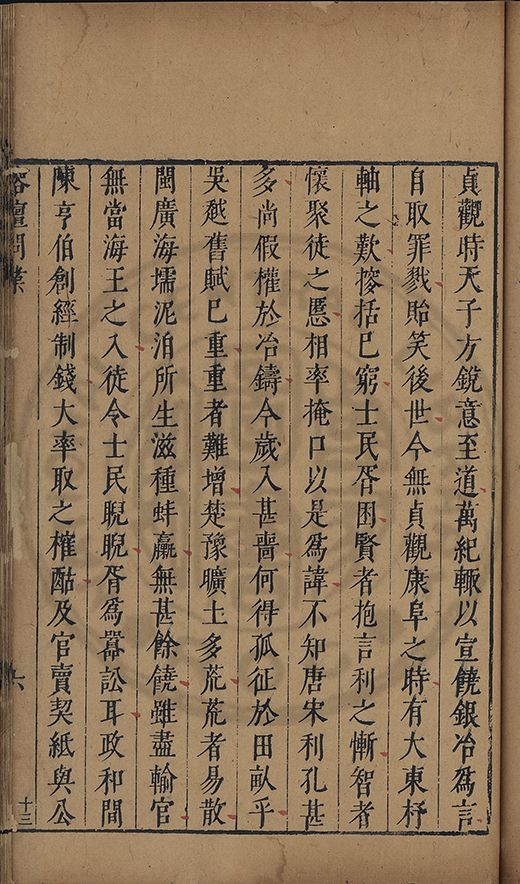 貞觀時天子方銳意至道萬紀輙以宣饒銀冶爲言
自取罪戮貽笑後世今無貞觀康阜之時有大東杼
軸之歎撥括已窮士民胥困賢者抱言利之慚智者
懷聚徒之慝相率掩口以是爲諱不知唐宋利孔甚
多尚假權於冶鑄今歲入甚嗇何得孤征於田畝乎
吳越舊賦已重重者難增楚豫曠土多荒荒者易散
閩廣海壖泥泊所生滋種蚌蠃無甚餘饒雖盡輸官
無當海王之入徒令士民睨睨胥爲嚚訟耳政和間
陳亨伯創經制錢大率取之榷酤及官賣契紙與公
榕壇問業
六
十三